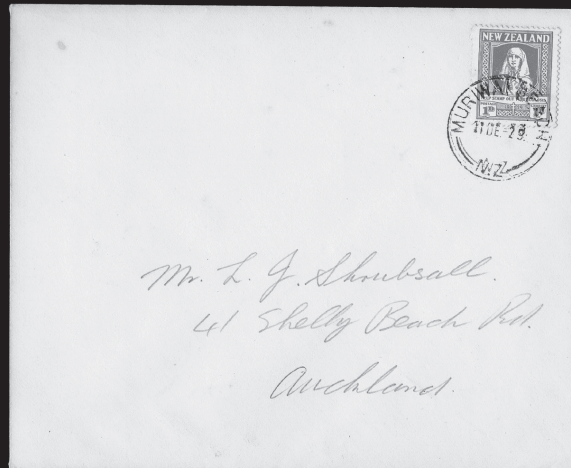 NEW ZEALAND
1D 1D
MURIWAI BEACH
11 DE 29
N.Z.
Mr. L. G. Shrubsall.
41 Shelly Beach Rd.
Auckland.